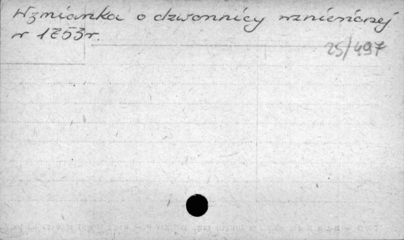 Wzmianka o dzwonnicy wzniesionej
w 1753r.
25/497